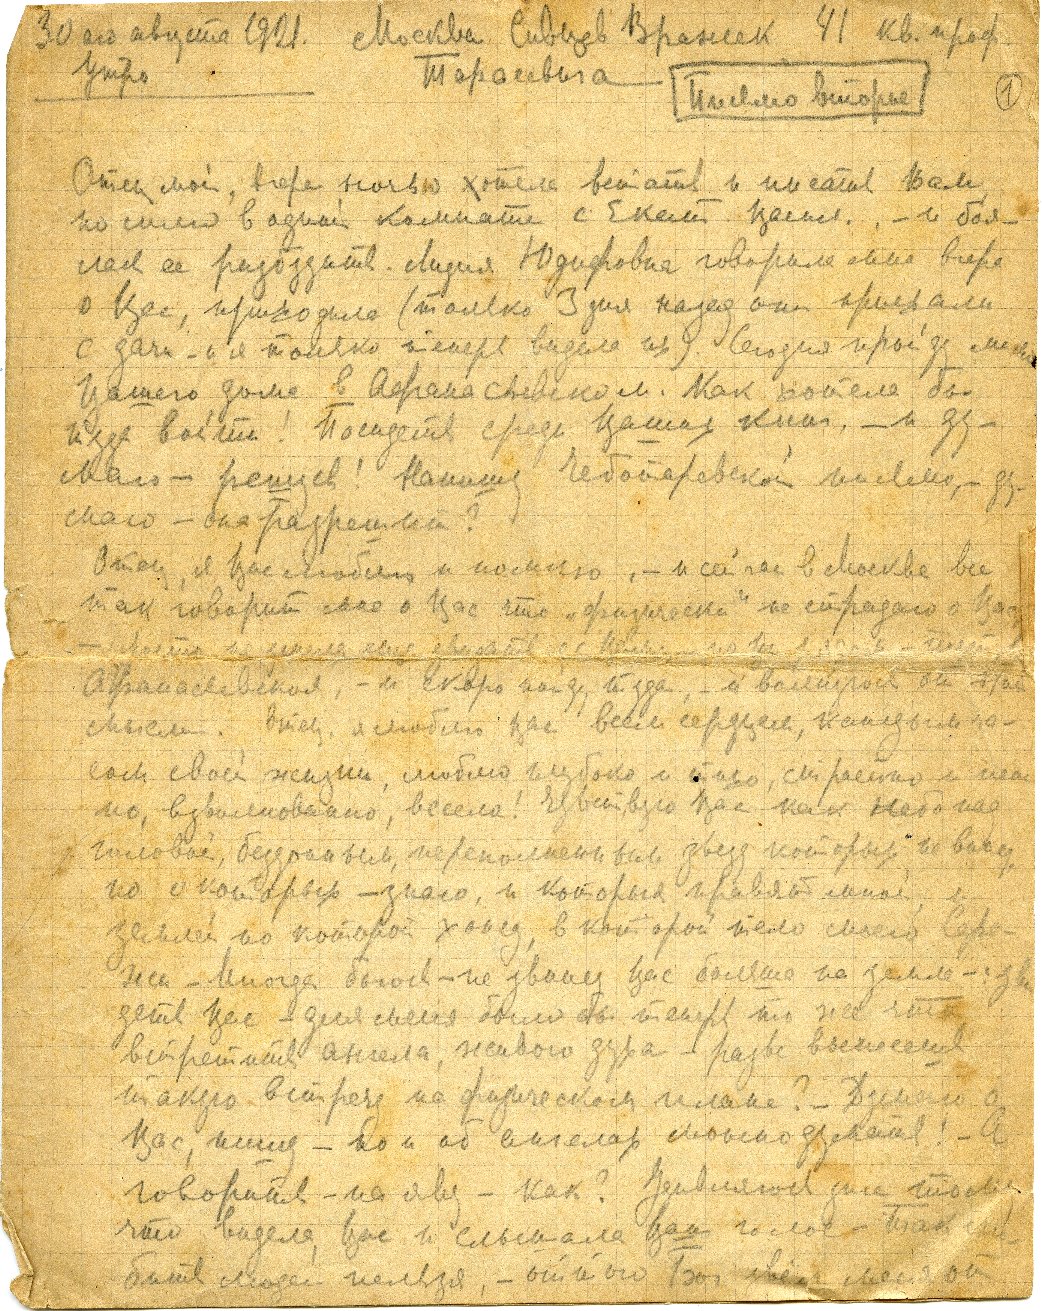 30 ого августа 1921. Москва Сивцев Вражек 41 кв. проф.
Утро Тарасевича
Письмо второе 1
Отец мой, вчера ночью хотела встать и писать Вам,
но сплю в одной комнате с Екат Васил., – и боя-
лась ее разбудить. Лидия Юдифовна говорила мне вчера
о Вас, приходила (только 3 дня назад они приехали
с дачи – и я только теперь видела их). Сегодня пройду мимо
Вашего дома в Афанасьевском. Как хотела бы
туда войти! Посидеть среди Ваших книг, – и ду-
маю – решусь! Напишу Чеботаревской письмо, – ду-
маю – она разрешит?
Отец, я Вас люблю и помню, – и сейчас в Москве все
так говорит мне о Вас что „физически" не страдаю о Вас
Афанасьевской, – и скоро пойду туда, – и волнуюсь от этой
мысли. Отец, я люблю Вас всем сердцем, каждым ча-
сом своей жизни, люблю глубоко и тихо, страстно и неж
но, взволнованно, весело! Чувствую Вас как небо над
головой, бездонным, переполненным звезд которых не вижу,
но о которых – знаю, и которыя правят мной, и
землей по которой хожу, в которой тело моего Сере-
жи – Иногда боюсь – не увижу Вас больше на земле –: уви
деть Вас – для меня было бы теперь то же что
встретить ангела, живого духа – разве вынесешь
такую встречу на физическом плане? – Думаю о
Вас, пишу – но и об ангелах можно думать! – А
говорить – на яву – как? Удивляюсь даже тому
что видела Вас и слышала Ваш голос. Так лю-
бить людей нельзя, – оттого Бог увел меня от